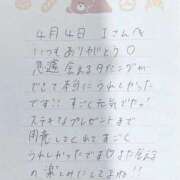 4月4日 Iさんへ
いつもありがとう♡
急遽会えるタイミングが
できて本当にうれしかった
です!! すごく元気でた!
ステキなプレゼントまで
用意してくれてすごく
うれしかったです♡また会える
の楽しみにしてますね!!